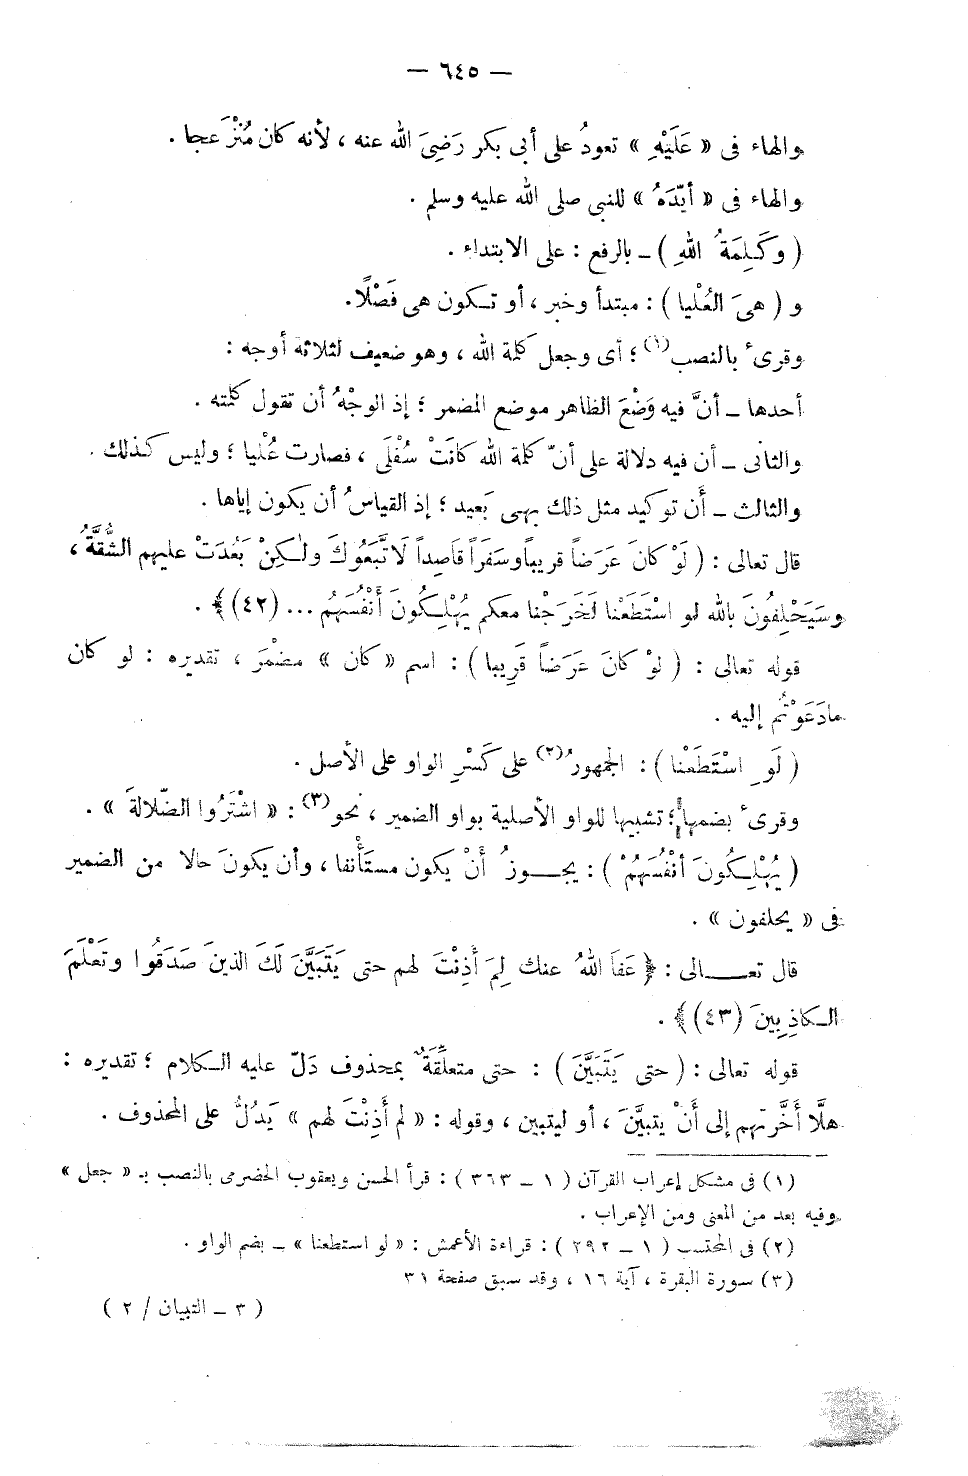 — ٦٤٥ —
والهاء فى « عَلَيْهِ » تعودُ على أبى بكر رَضِىَ الله عنه ، لأنه كان مُنْزَعجا .
والهاء فى « أيّدَهُ » للنبى صلى الله عليه وسلم .
( وكَلِمَةُ اللهِ ) ـ بالرفع : على الابتداء .
و ( هىَ العُلْيا ) : مبتدأ وخبر ، أو تكون هى فَصْلًا.
وقرىء بالنصب(١) ؛ أى وجعل كلمة الله ، وهو ضعيف لثلاثة أوجه :
أحدها ـ أنَّ فيه وَضْعَ الظاهر موضع المضمر ؛ إذ الوجْهُ أن تقول كلمته .
والثانى ـ أن فيه دلالة على أنّ كلمة الله كانَتْ سُفْلَى ، فصارت عُلْيا ؛ وليس كذلك .
والثالث ـ أَن توكيد مثل ذلك بهى بَعيد ؛ إذ القياسُ أن يكون إياها .
قال تعالى : ( لَوْ كانَ عَرَضاً قريباً وسَفَراً قاصِداً لَاتَّبَعُوكَ ولٰكِنْ بَعُدَتْ عليهم الشُّقَّةُ ،
وسَيَحْلِفُونَ بالله لو اسْتَطَعْنا لَخَرَجْنا معكم يُهْلِكُونَ أَنْفُسَهُم ... (٤٢) ﴾ .
قوله تعالى : ( لوْ كانَ عَرَضاً قَرِيبا ) : اسم « كان » مضمَر ، تقديره : لو كان
مادَعَوْتُم إليه .
( لَوِ اسْتَطَعْنا ) : الجمهورُ(٢) على كَسْرِ الواو على الأصل .
وقرىء بضمها ؛ تشبيها للواو الأصلية بواو الضمير ، نحو(٣) : « اشْتَرُوا الضّلالةَ » .
( يُهْلِكُونَ أنْفُسَهُمْ ) : يجــوزُ أَنْ يكون مستَأْنفا ، وأن يكونَ حالا من الضمير
فى « يحلفون » .
قال تعــالى : ﴿ عَفَا اللهُ عنك لِمَ أَذِنْتَ لهم حتى يَتَبَيَّنَ لَكَ الذينَ صَدَقُوا وتَعْلَمَ
الكاذِبِينَ (٤٣) ﴾ .
قوله تعالى : ( حتى يَتَبَيَّنَ ) : حتى متعلِّقَةٌ بمحذوف دَلّ عليه الكلام ؛ تقديره :
هلَّا أَخَّرتهم إلى أَنْ يتبيَّنَ ، أو ليتبين ، وقوله : « لم أَذِنْتَ لهم » يَدُلُّ على المحذوف .
(١) فى مشكل إعراب القرآن ( ١ ـ ٣٦٣ ) : قرأ الحسن ويعقوب الحضرمى بالنصب بـ « جعل »
وفيه بعد من المعنى ومن الإعراب .
(٢) فى المحتسب ( ١ ـ ٢٩٢ ) : قراءة الأعمش : « لو استطعنا » ـ بضم الواو .
(٣) سورة البقرة ، آية ١٦ ، وقد سبق صفحة ٣١
( ٣ ـ التبيان / ٢ )